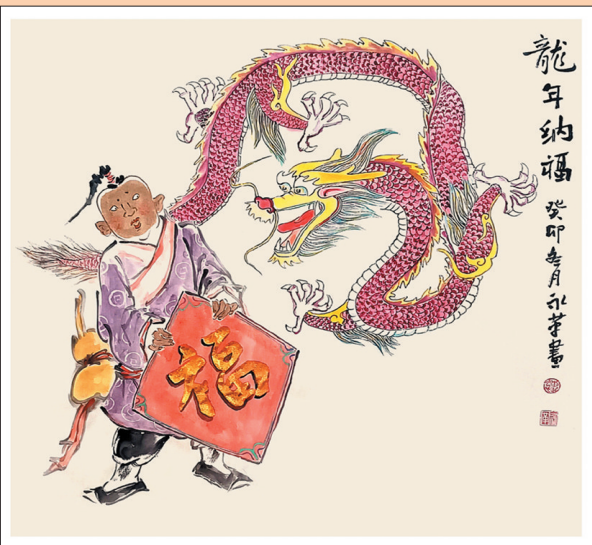 龍年纳福
癸卯冬月永畫
福